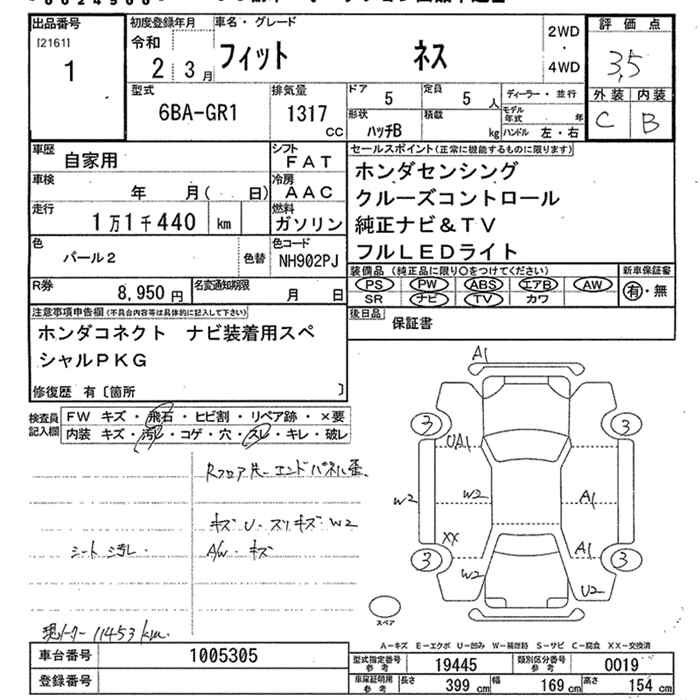 出品番号
[2161]
1
初度登録年月
令和
2 3月
車名・グレード
フィット ネス
2WD
・
4WD
評価点
3,5
外装 内装
C B
型式
6BA-GR1
排気量
1317
CC
ドア
5
定員
5 人
ディーラー・並行
形状
ハッチB
積載
kg
モデル年式 年
ハンドル 左・右
車歴
自家用
シフト
FAT
車検
年 月( 日)
冷房
AAC
走行
1万1千440 km
燃料
ガソリン
セールスポイント(正常に機能するものに限ります)
ホンダセンシング
クルーズコントロール
純正ナビ&TV
フルLEDライト
色
パール2
色替
色コード
NH902PJ
装備品 (純正品に限り○をつけてください)
PS PW ABS エアB AW
SR ナビ TV カワ
新車保証書
有・無
R券
8,950円
名変通知期限
月 日
後日品
保証書
注意事項申告欄(不具合内容等は具体的に記入して下さい)
ホンダコネクト ナビ装着用スペ
シャルPKG
修復歴 有〔箇所 〕
検査員
記入欄
FW キズ・飛石・ヒビ割・リペア跡・×要
内装 キズ・汚レ・コゲ・穴・スレ・キレ・破レ
Rフロア
エンドパネル歪
キズ U・スリキズ W2
A/W・キズ
シート汚レ
11453 km
A1
3
3
UA1
W2
W2
A1
XX
A1
3
3
W2
U2
スペア
A-キズ E-エクボ U-凹み W-補修跡 S-サビ C-腐食 XX-交換済
車台番号
1005305
登録番号
型式指定番号
参考
19445
類別区分番号
参考
0019
車庫証明用
参考
長さ
399 cm
幅
169 cm
高さ
154 cm